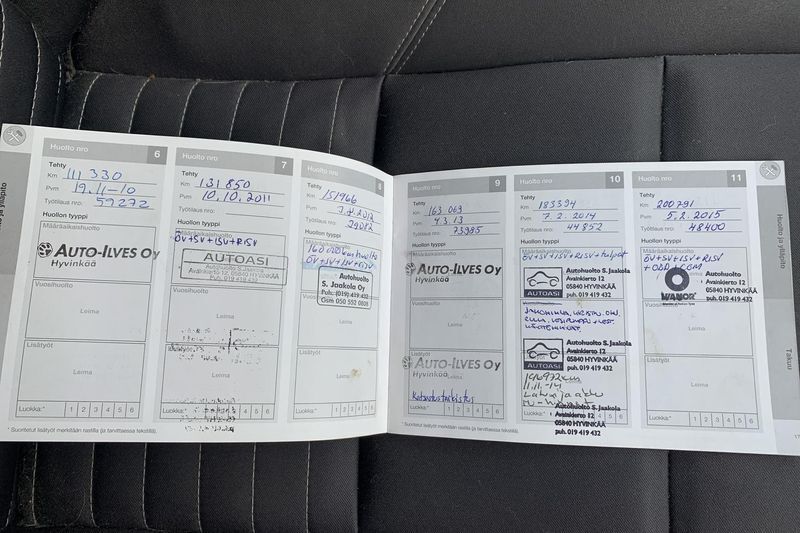 Huolto nro 6
Tehty
Km 111 330
Pvm 19.11-10
Työtilaus nro: 59272
Huollon tyyppi
Määräaikaishuolto
AUTO-ILVES OY
Hyvinkää
Vuosihuolto
Leima
Lisätyöt
Leima
Luokka:* 1 2 3 4 5 6
* Suoritetut lisätyöt merkitään rastilla (ja tarvittaessa tekstillä).
Huolto nro 7
Tehty
Km 131 850
Pvm 10.10.2011
Työtilaus nro:
Huollon tyyppi
Määräaikaishuolto
ÖV+SV+ISV+RISV
AUTOASI
Avainkierto 12, 05840 HYVINKÄÄ
Puh. 019 419 432
Vuosihuolto
Leima
Lisätyöt
Leima
Luokka:* 1 2 3 4 5 6
Huolto nro 8
Tehty
Km 151966
Pvm
Työtilaus nro:
Huollon tyyppi
Autohuolto
S. Jaakola Oy
Puh. (019) 419 432
Gsm 050 552 0808
Vuosihuolto
Leima
Lisätyöt
Leima
Luokka:* 1 2 3 4 5 6
Huolto nro 9
Tehty
Km 163 063
Pvm 4.3.13
Työtilaus nro: 73985
Huollon tyyppi
Määräaikaishuolto
AUTO-ILVES OY
Hyvinkää
Vuosihuolto
Leima
Lisätyöt
AUTO-ILVES OY
Hyvinkää
Leima
Katsastustarkistus
Luokka:* 1 2 3 4 5 6
Huolto nro 10
Tehty
Km 183394
Pvm 7.2.2014
Työtilaus nro: 44852
Huollon tyyppi
Määräaikaishuolto
ÖV+SV+ISV+RISV+tulpat
AUTOASI
Autohuolto S. Jaakola
Avainkierto 12
05840 HYVINKÄÄ
puh. 019 419 432
AUTOASI
Autohuolto S. Jaakola
Avainkierto 12
05840 HYVINKÄÄ
puh. 019 419 432
11.11.-14
Autohuolto S. Jaakola
Avainkierto 12
05840 HYVINKÄÄ
puh. 019 419 432
Huolto nro 11
Tehty
Km 200791
Pvm 5.2.2015
Työtilaus nro: 48400
Huollon tyyppi
Määräaikaishuolto
ÖV+SV+ISV+RISV
Autohuolto S. Jaakola
Avainkierto 12
05840 HYVINKÄÄ
puh. 019 419 432
Vuosihuolto
Leima
Lisätyöt
Leima
Luokka:* 1 2 3 4 5 6
* Suoritetut lisätyöt merkitään rastilla (ja tarvittaessa tekstillä).
Huolto ja ylläpito
Takuu